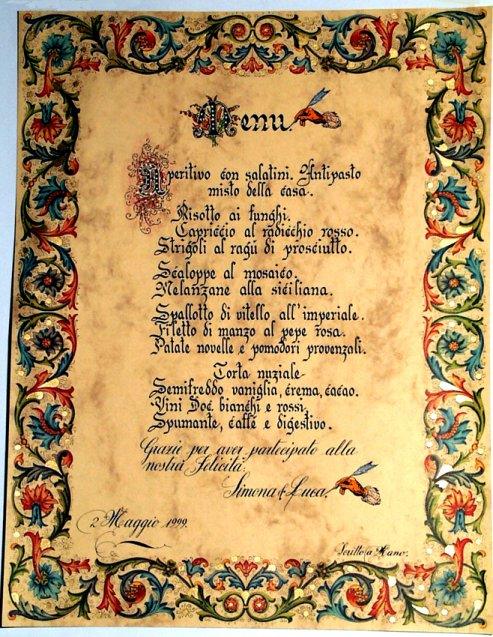 Menu.
Aperitivo con salatini. Antipasto
misto della casa.
Risotto ai funghi.
Capriccio al radicchio rosso.
Strigoli al ragù di prosciutto.
Scaloppe al mosaico.
Melanzane alla siciliana.
Spallotto di vitello all'imperiale.
Filetto di manzo al pepe rosa.
Patate novelle e pomodori provenzali.
Torta nuziale
Semifreddo vaniglia, crema, cacao.
Vini Doc bianchi e rossi,
Spumante, caffè e digestivo.
Grazie per aver partecipato alla
nostra Felicità.
Simona & Luca.
2 Maggio 1999.
Scritto a Mano.